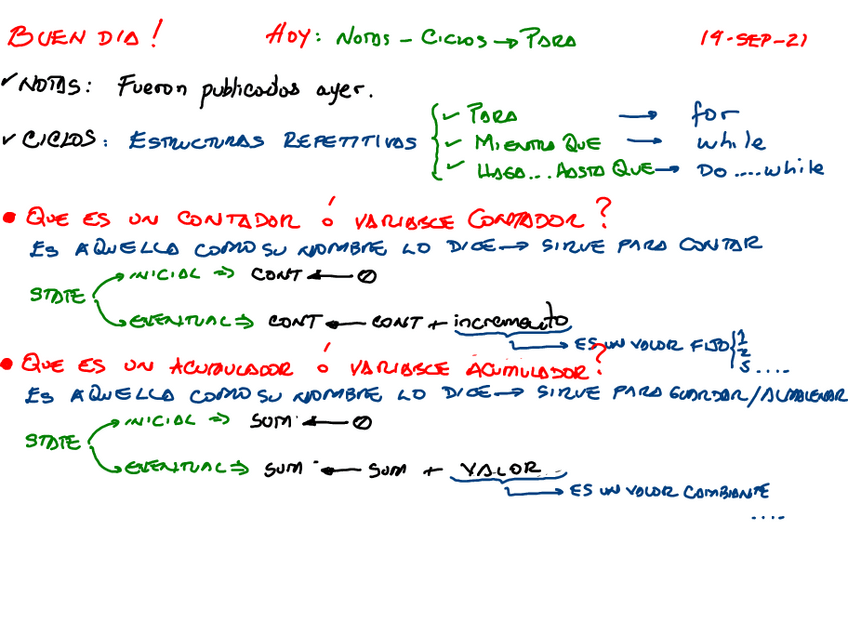 BUEN DIA! HOY: NOTAS - CICLOS → PARA 14-SEP-21
✓ NOTAS: Fueron publicadas ayer.
✓ CICLOS: ESTRUCTURAS REPETITIVAS
✓ PARA → for
✓ MIENTRA QUE → while
✓ HAGA...HASTA QUE → DO ....while
• QUE ES UN CONTADOR Ó VARIABLE CONTADOR?
ES AQUELLA COMO SU NOMBRE LO DICE → SIRVE PARA CONTAR
STATE
INICIAL ⇒ CONT ← 0
EVENTUAL ⇒ CONT ← CONT + incremento
→ ES UN VALOR FIJO { 1 2 5 ....
• QUE ES UN ACUMULADOR Ó VARIABLE ACUMULADOR?
ES AQUELLA COMO SU NOMBRE LO DICE → SIRVE PARA GUARDAR/ALMACENAR
STATE
INICIAL ⇒ SUM ← 0
EVENTUAL ⇒ SUM ← SUM + VALOR
→ ES UN VALOR CAMBIANTE
....